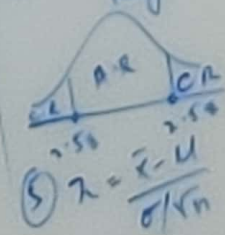 A.R
C.R C.R
2.58 2.58
⑤ z = x̄ - μ
σ/√n